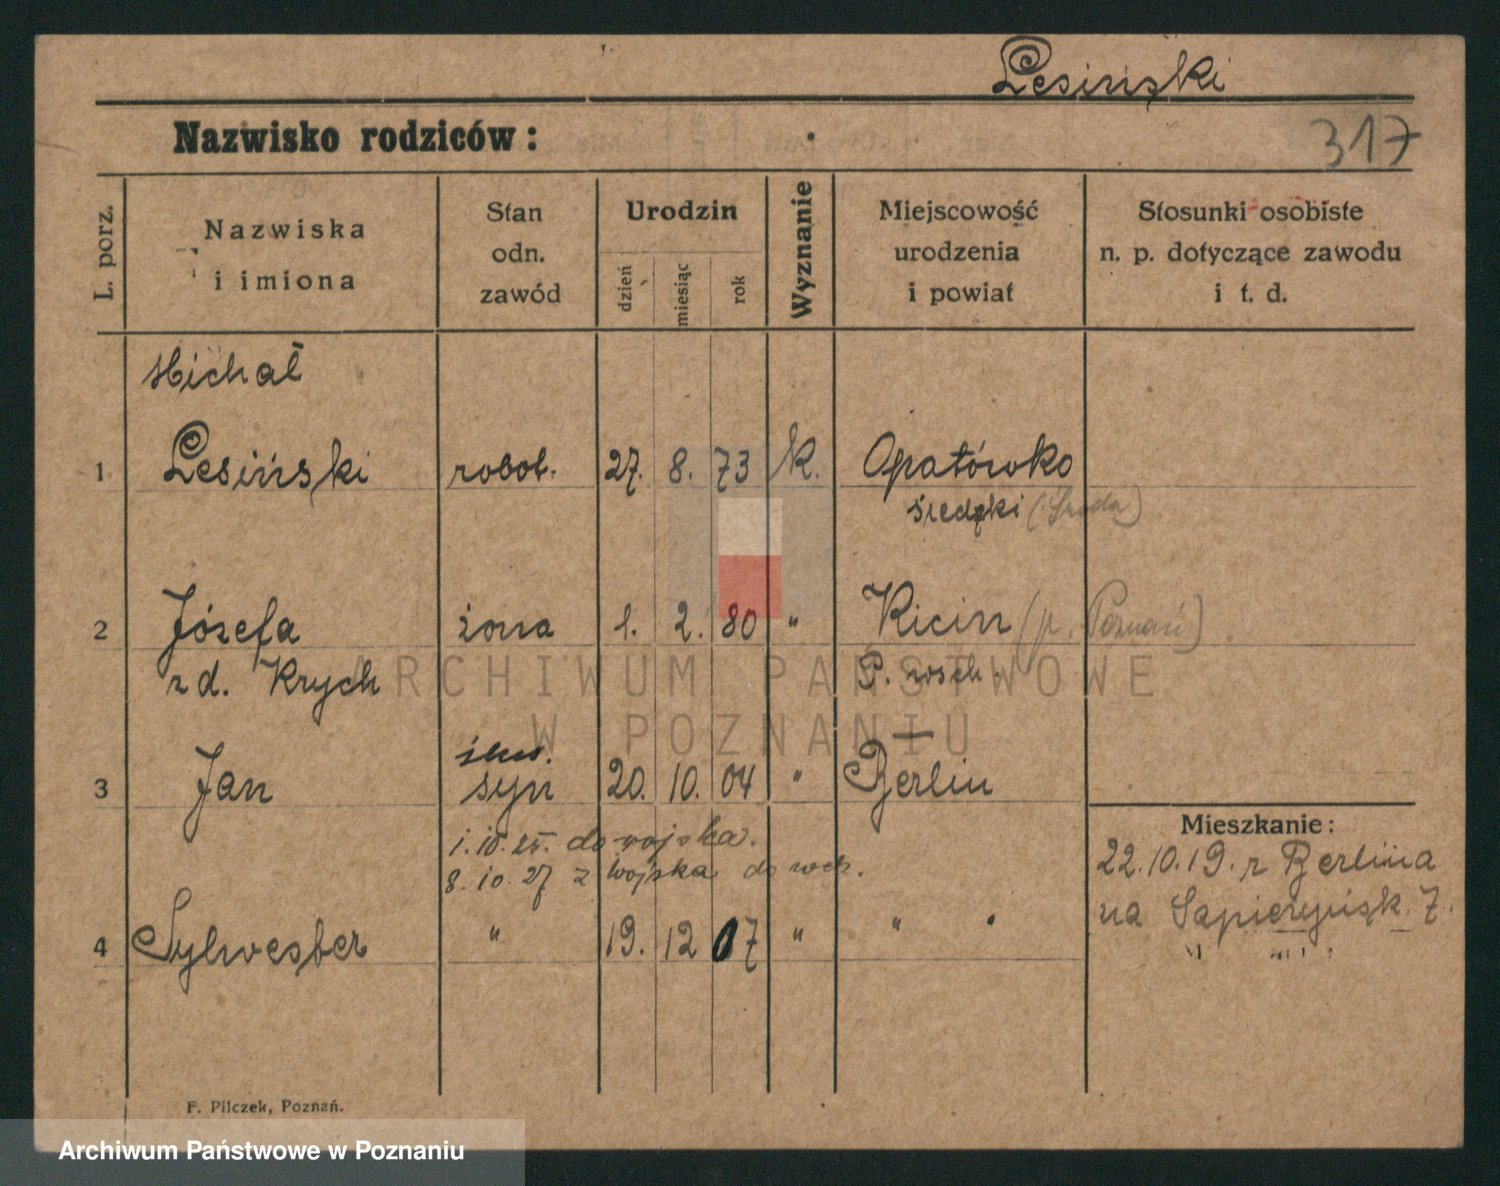 Lesiński
Nazwisko rodziców:
317
L. porz.
Nazwiska
i imiona
Stan
odn.
zawód
Urodzin
dzień
miesiąc
rok
Wyznanie
Miejscowość
urodzenia
i powiat
Stosunki osobiste
n. p. dotyczące zawodu
i t. d.
Michał
1 Lesiński robot. 27. 8. 73 k. Opatówko
średzki (Środa)
2 Józefa żona 1. 2. 80 " Kicin (p. Poznań)
zd. Krych P. wsch.
3 Jan syn 20. 10. 04 " Berlin
Mieszkanie:
1. 10. 25. do wojska.
8. 10. 27 z wojska do
22.10.19. z Berlina
na Sapieżyńsk. 7.
4 Sylwester " 19. 12 07 " " "
F. Pilczek, Poznań.
ARCHIWUM PAŃSTWOWE
W POZNANIU
Archiwum Państwowe w Poznaniu